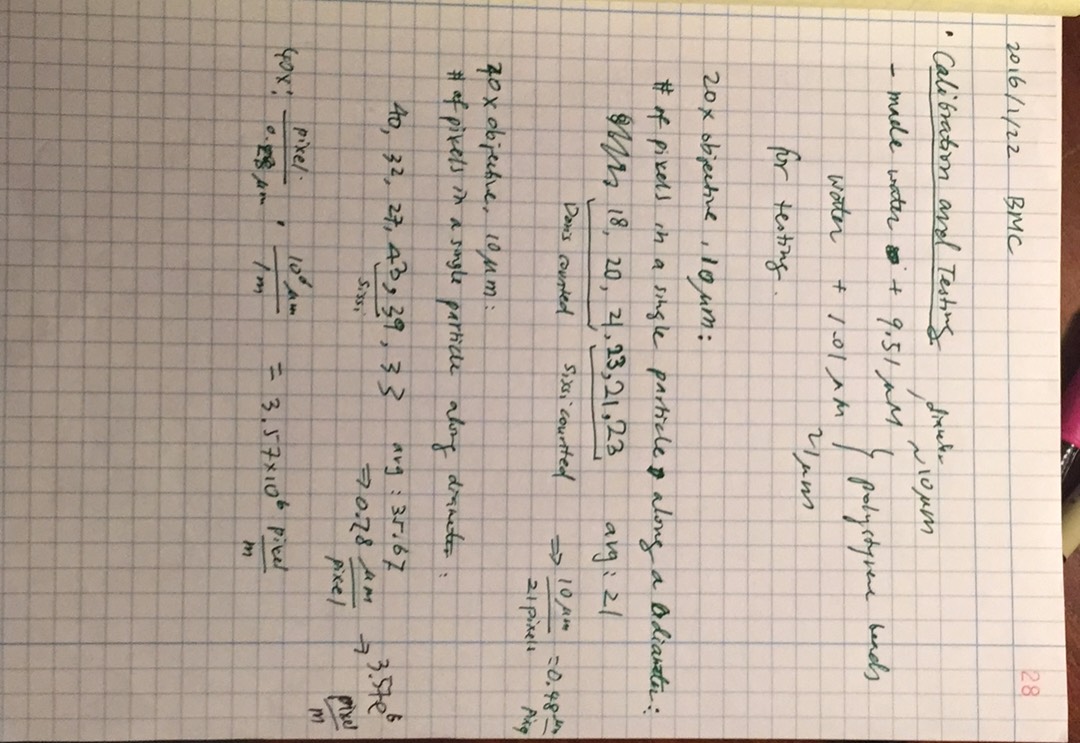 2016/1/22 BMC
28
• Calibration and Testing
diameter
- made water + 9.51 µM ~10µm
water + 1.01 µM } polystyrene beads
~1µm
for testing.
20x objective, 10µm:
# of pixels in a single particle along a diameter:
18, 20, 21, 23, 21, 23 avg: 21
Doris counted Sissi counted ⇒ 10µm / 21 pixels = 0.48 µm
40x objective, 10µm:
# of pixels in a single particle along diameter:
40, 32, 27, 43, 39, 33 avg: 35.67
Sissi ⇒ 0.28 µm/pixel → 3.57e⁶ pixel/m
40x: pixel / 0.28 µm · 10⁶ µm / 1 m = 3.57x10⁶ pixel/m